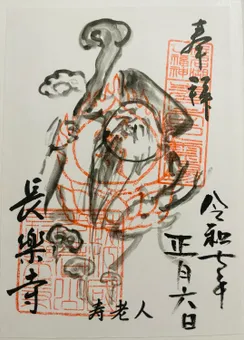 奉拝
令和七年
正月六日
寿老人
長樂寺